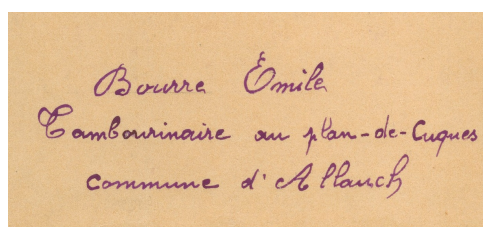 Bourre Émile
Tambourinaire au plan-de-Cuques
commune d'Allauch